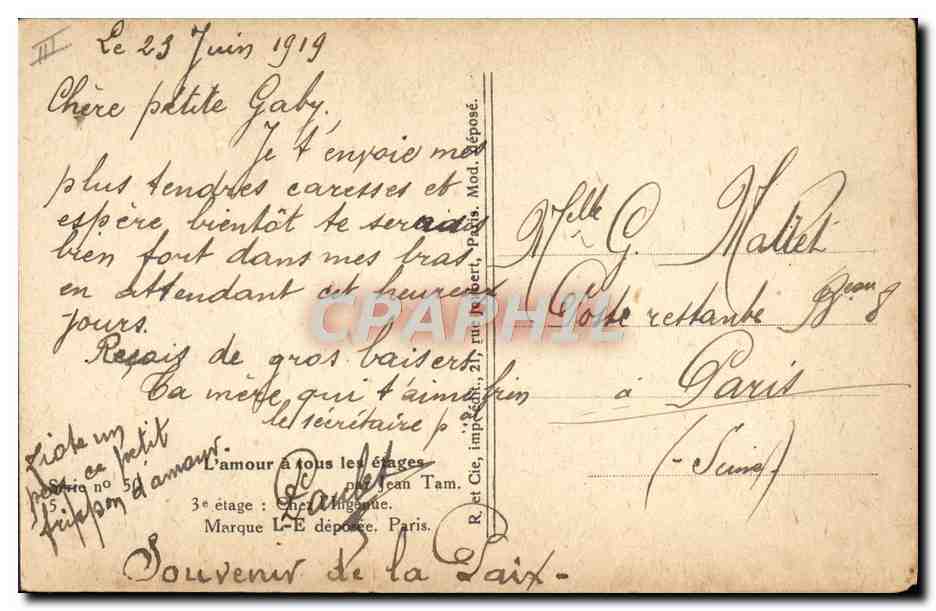 III
Le 23 Juin 1919
Chère petite Gaby.
Je t'envoie mes
plus tendres caresses et
espère bientôt te serais
bien fort dans mes bras
en attendant cet heureux
jours.
Reçois de gros baisert
Ta mère qui t'aime bien
le sécritaire p
Paulet
ce petit
frippon d'amour.
L'amour à tous les étages
Série no 56
par Jean Tam.
3e étage : Chez l'Ingénue.
Marque L-E déposée. Paris.
Souvenir de la Paix -
R. et Cie, imp.-édit., 21, rue Joubert, Paris. Mod. déposé.
Melle G. Mallet
Poste restante
à Paris
(-Seine)
CPAPHIL